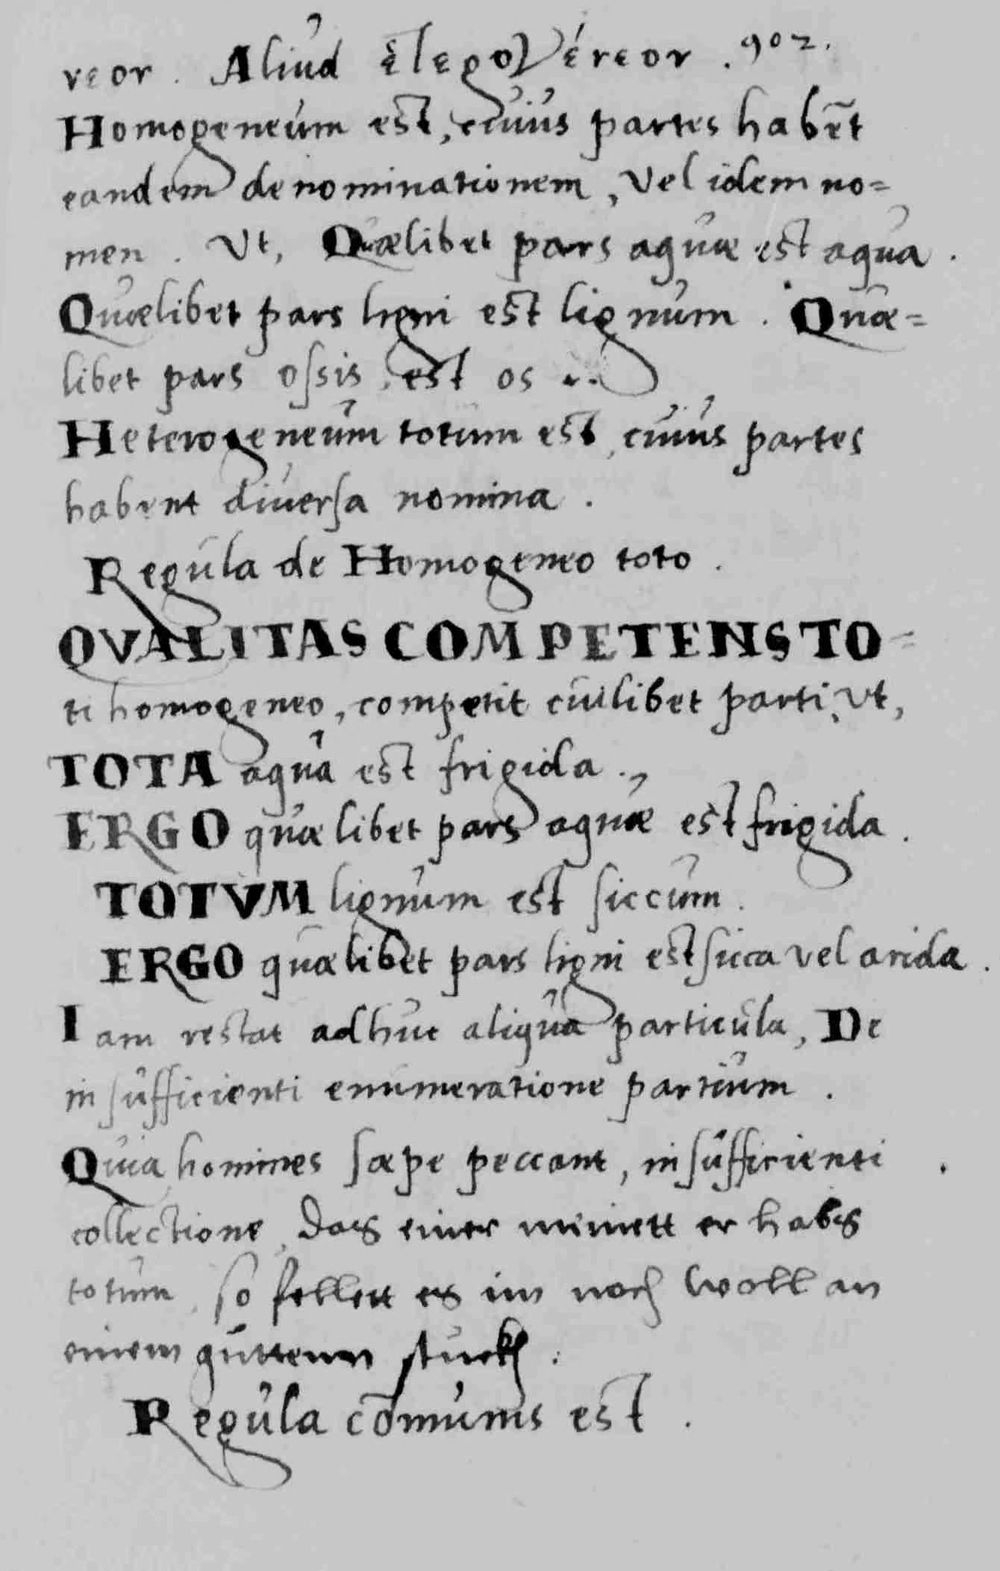 veor. Aliud ἑτερογένεον. 902.
Homogeneum est, cuius partes habēt
eandem denominationem, vel idem no=
men. Vt, Quælibet pars aquæ est aqua.
Quælibet pars ligni est lignum. Quæ=
libet pars ossis, est os.
Heterogeneum totum est, cuius partes
habent diversa nomina.
Regula de Homogeneo toto.
QVALITAS COMPETENS TO=
ti homogeneo, competit cuilibet parti, Vt,
TOTA aqua est frigida.
ERGO quælibet pars aquæ est frigida.
TOTVM lignum est siccum.
ERGO quælibet pars ligni est sicca vel arida.
Iam restat adhuc aliqua particula, De
insufficienti enumeratione partium.
Quia homines sæpe peccant, insufficienti
collectione, das einer meinett er habs
totum, so fellett es im noch woll an
einem guttenn stuck.
Regula cōmunis est.